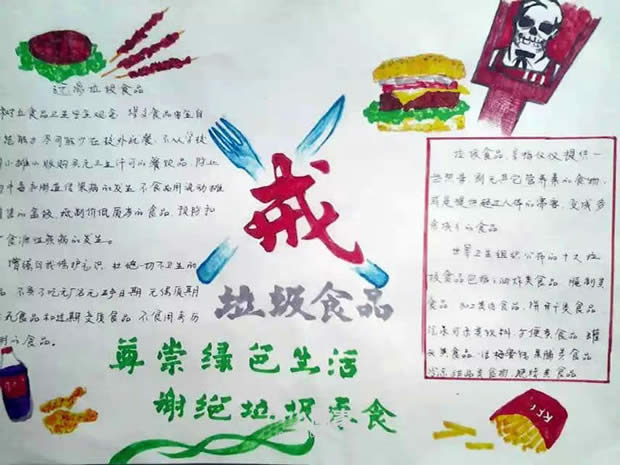 远离垃圾食品
树立食品卫生安全观念 增强食品安全自
尽可能少在校外就餐 不从学校
小摊小贩购买无卫生许可的餐饮品 防止
病的发生 不食用流动摊
抵制价低质劣的食品 预防和
食源性疾病的发生。
增强自我保护意识 杜绝一切不卫生的
品 不要了吃无厂名无生产日期 无保质期
食品和过期变质食品 不食用来历
的食品。
戒
垃圾食品
尊崇绿色生活
谢绝垃圾零食
垃圾食品，是指仅仅提供一
些热量 别无其它营养素的食物
或是提供超过人体的需要 变成多
余成分的食品
世界卫生组织公布的十大垃
圾食品包括：油炸类食品 腌制类
食品 加工类 食品 饼干类食品
汽水可乐类饮料 方便类食品 罐
头类食品 话梅蜜饯果脯类食品
冷冻甜品类食物 烧烤类食品
KFC